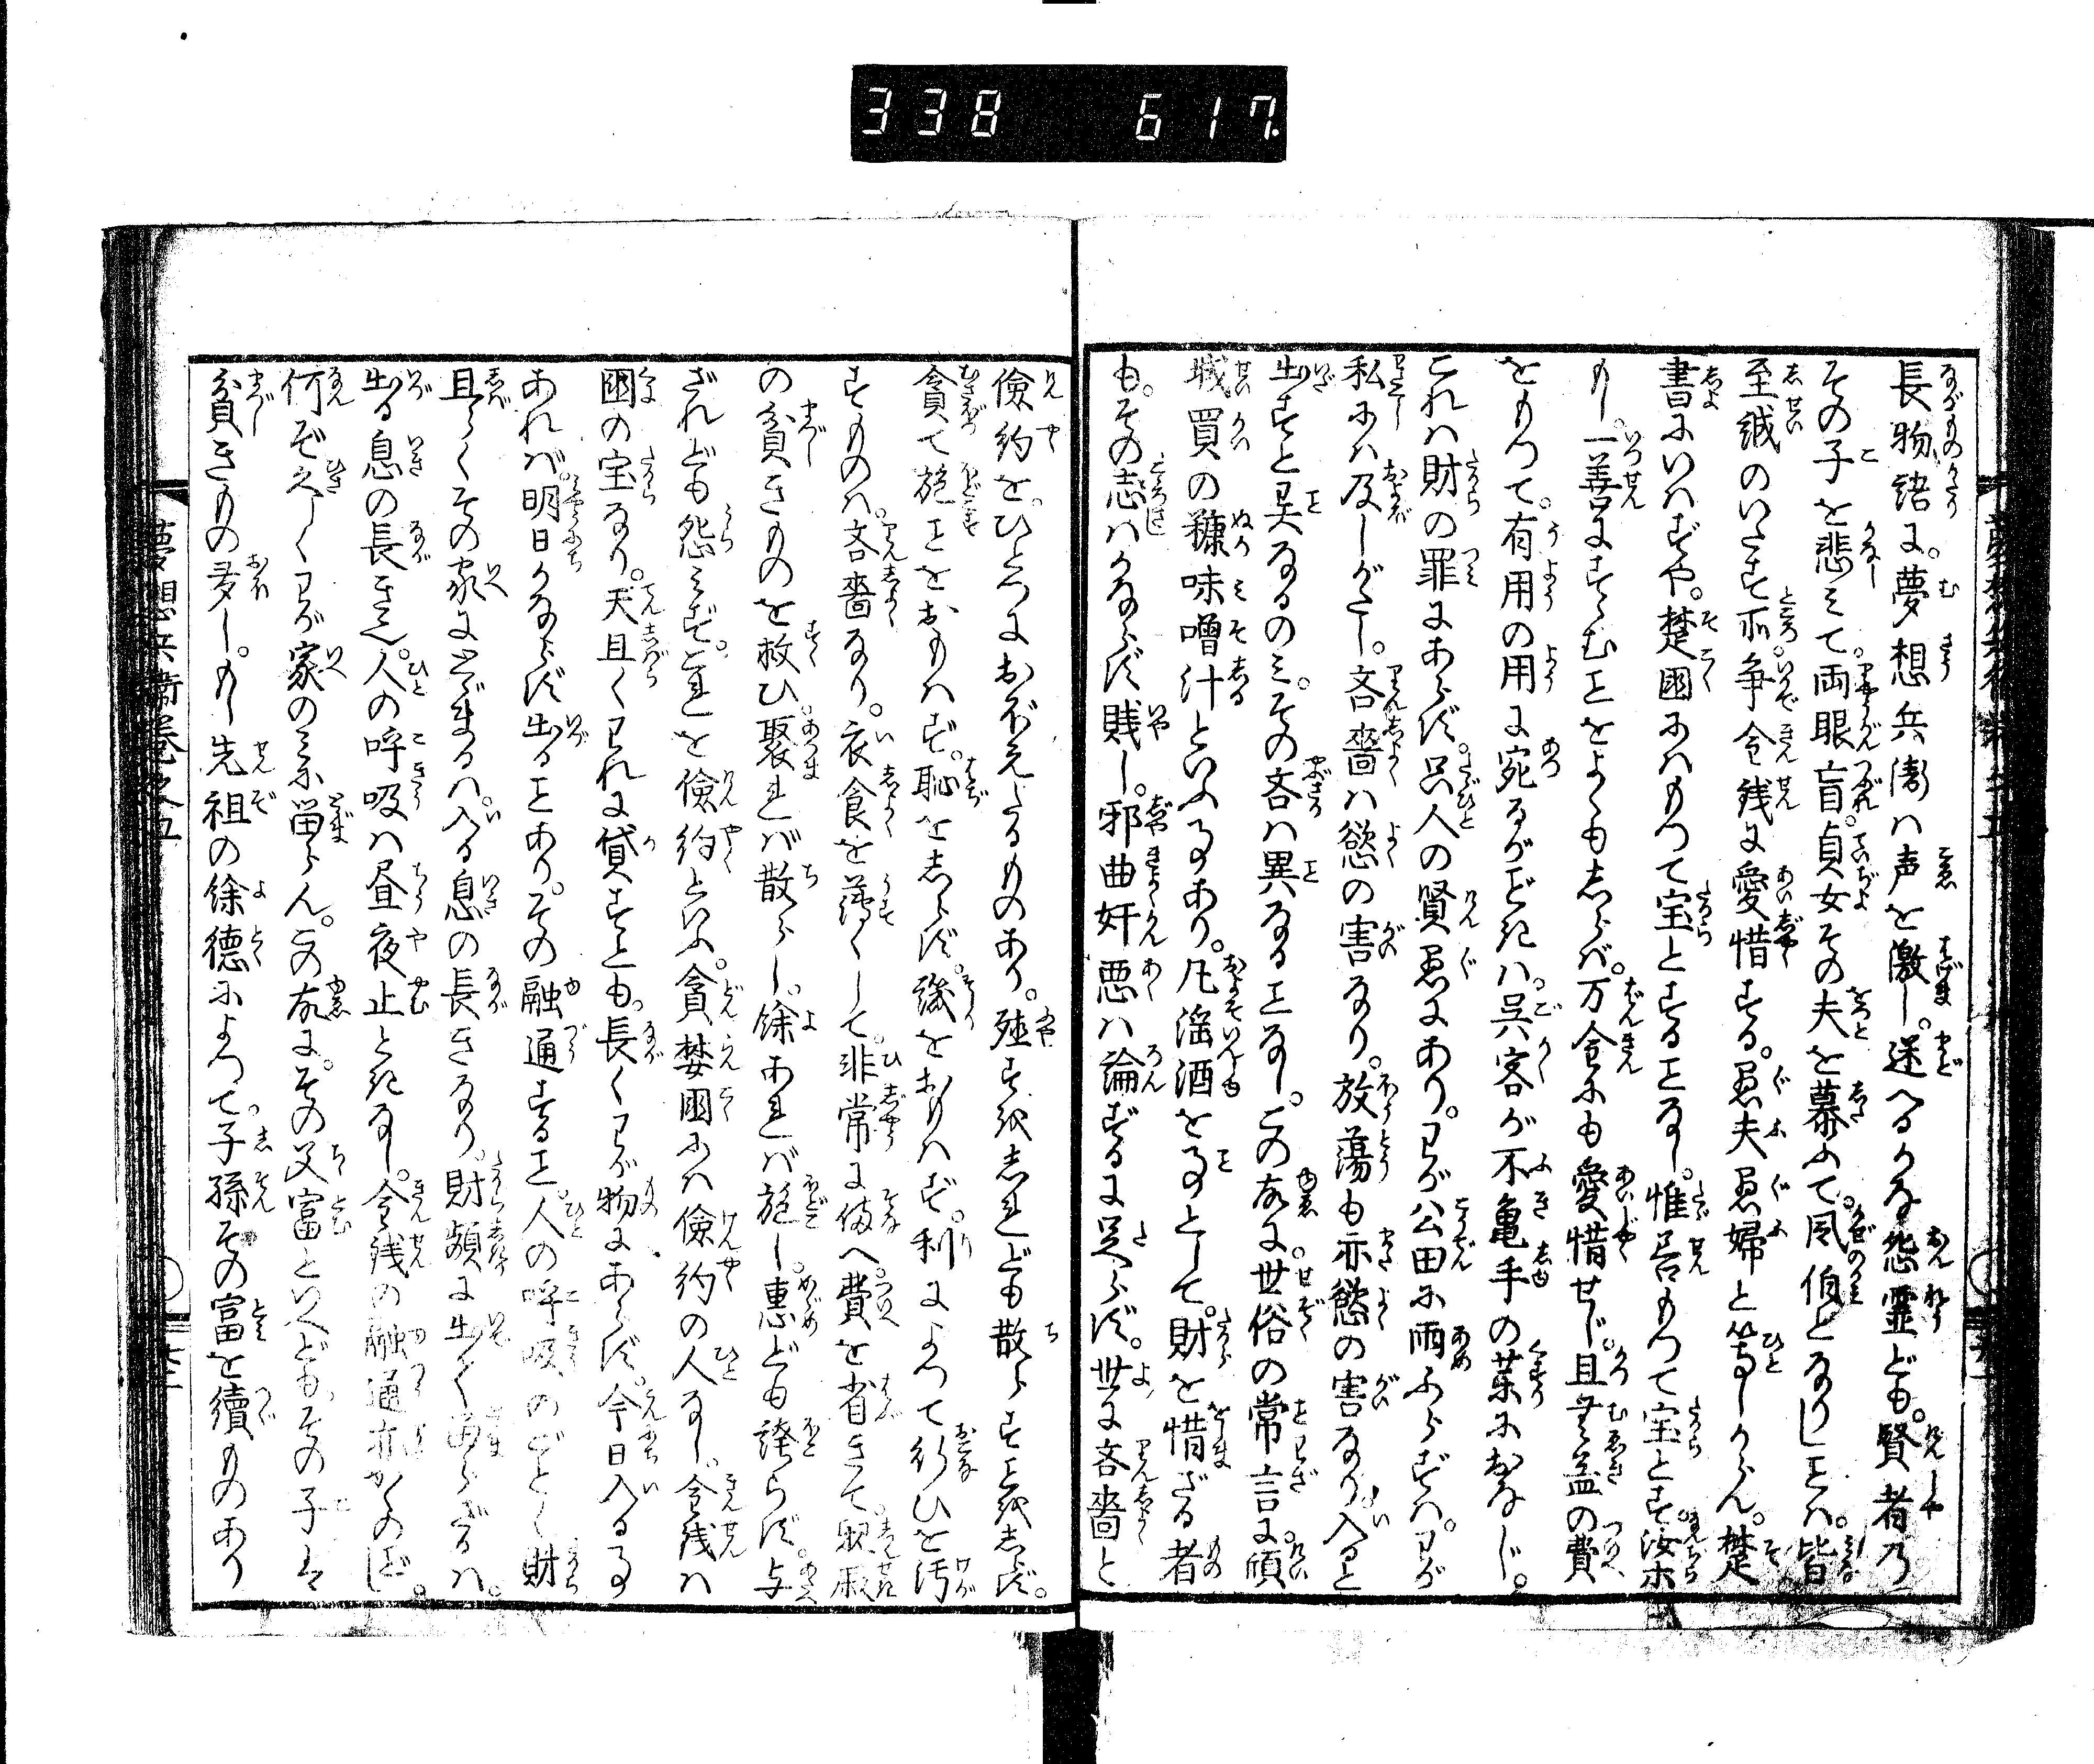 338 617
長物語に。夢想兵衛は声を激し。迷へるかな怨霊ども。賢者の
その子を悲みて。両眼盲。貞女その夫を慕ふて。風伯となりしことは。皆
至誠のいたす所。争金銭に愛惜する。愚夫愚婦と等しからん。楚
書にいはずや。楚国にはもつて宝とすることなし。惟善もつて宝とす。汝等
もし。一善にすゝむことをよくもしらば。万金にも愛惜せじ。且無益の費
をもつて。有用の用に宛るがごときは。呉客が不亀手の薬におなじ。
これは財の罪にあらず。只人の賢愚にあり。わが公田に雨ふらずは。わが
私には及しがたし。吝嗇は慾の害なり。放蕩も亦慾の害なり。入ると
出すと異なるのミ。その吝は異なることなし。この故に世俗の常言に。
買の糠味噌汁といふ事あり。凡淫酒を事として。財を惜まざる者
も。その志はかならず賎し。邪曲奸悪は論ずるに足らず。世に吝嗇と
倹約を。ひとつにおぼえたるものあり。殖すことをしれども散らすことをしらず。
貪て施ことをおもはず。恥をしらず。譏をおもはず。利によつて行ひを汚
すものは。吝嗇なり。衣食を薄くして。非常に備へ。費を省きて。親戚
の貧きものを救ひ。聚れば散らし。餘あれば施し。恵ども誇らず。与
ざれども怨ミず。これを倹約といふ。貪婪国には倹約の人なし。金銭は
国の宝なり。天且くわれに貸すとも。長くわが物にあらず。今日入る事
あれば。明日かならず出ることあり。その融通すること。人の呼吸のごとく。財
且らくその家にとゞまるは。入る息の長きなり。財頻に出て留らざるは。
出る息の長きに。人の呼吸は昼夜止ときなし。金銭の融通亦かくのごとし。
何ぞ久しくわが家のミ留らん。この故に。その父富といへども。その子は
貧きもの多し。もし先祖の餘徳によつて。子孫その富を續ものあり
夢想兵衛巻之五